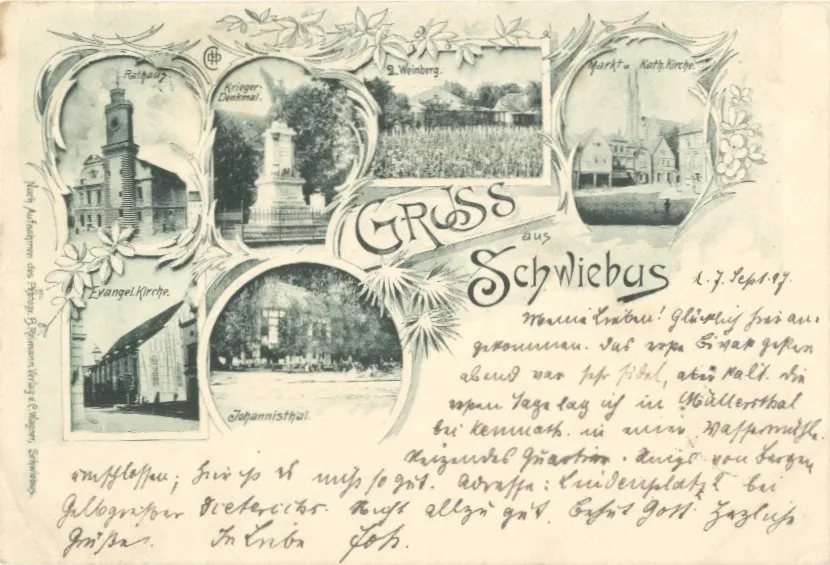 Rathaus.
Krieger-
Denkmal.
a. Weinberg.
Markt u. Kath. Kirche.
GRUSS
aus
Schwiebus
Evangel. Kirche.
Johannisthal.
Nach Aufnahmen des Photogr. Verlag v. P. Wagner, Schwiebus.
d. 7. Sept. 97.
Meine Lieben! Glücklich hier an-
gekommen. Das erste Bivak gestern
abend war sehr fidel, aber kalt. Die
ersten Tage lag ich in Müllersthal
bei in einer Wassermühle.
Reizendes Quartier. Rings von Bergen
umschlossen; hier ist es nicht so gut. Adresse: Lindenplatz bei
Gelbgießer Dieterichs. Nicht allzu gut. Behüt Gott. Herzliche
Grüße. In Liebe Joh.